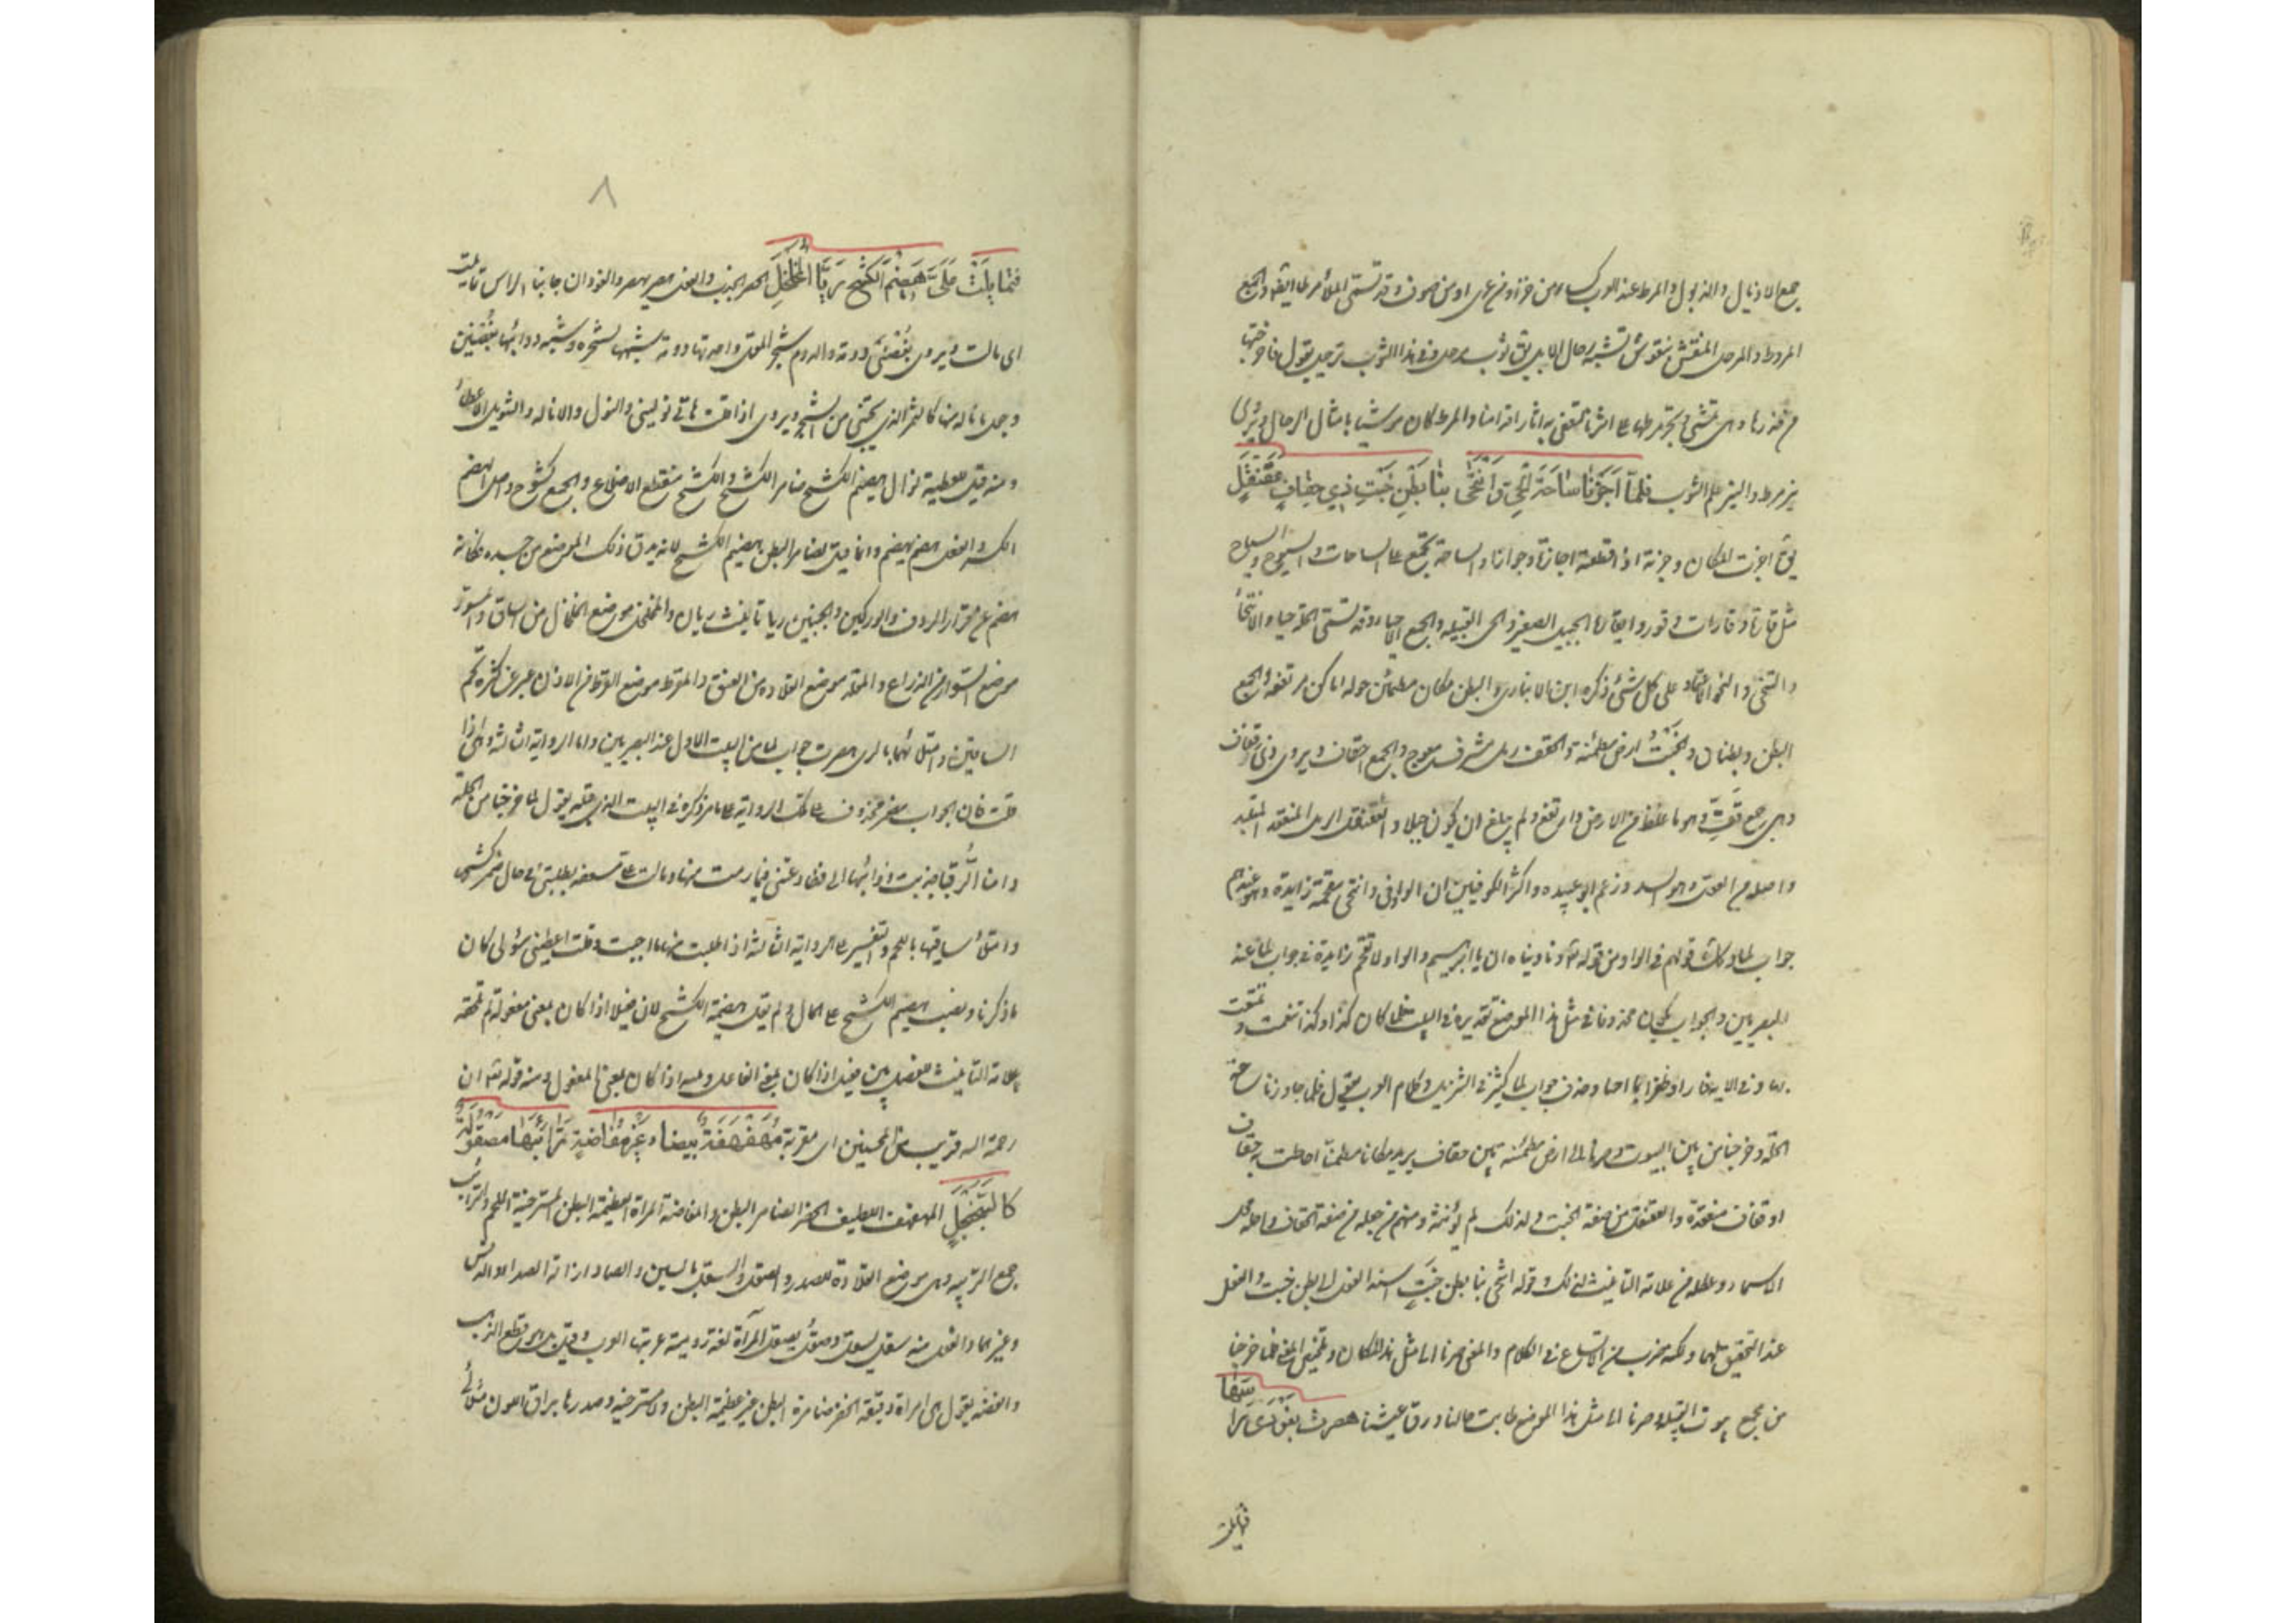 جمع الاذيال والذيول والمرط عند العرب كساء من خز او مرعزى او من صوف وقد تسمى الملاءة مرطا ايضا والجمع
المروط والمرحل المنقش بنقوش تشبه رحال الابل يق ثوب مرحل وفي هذا الثوب ترحيل يقول فاخرجتها
من خدرها وهي تمشي وتجر مرطها على اثرنا لتعفي به اثار اقدامنا والمرط كان موشيا بامثال الرحال ويروى
نير مرط والنير علم الثوب فَلَمَّا اَجَزْنَا سَاحَةَ الْحَيِّ وَانْتَحَى بِنَا بَطْنُ خَبْتٍ ذِي حِقَافٍ عَقَنْقَلِ
يق اجزت المكان وجزته اذا قطعته اجازة وجوازا والساحة تجمع على الساحات والسوح والساح
مثل قارة وقارات وقور والقارة الجبيل الصغير والحي القبيلة والجمع الاحياء وقد تسمى الحلة حيا والانتحاء
والتنحي والنحو الاعتماد على كل شئ ذكره ابن الانباري والبطن مكان مطمئن حوله اماكن مرتفعة والجمع
ابطن وبطنان والخبت ارض مطمئنة والحقف رمل مشرف معوج والجمع احقاف ويروى ذي قفاف
وهي جمع قف وهو ما غلظ من الارض وارتفع ولم يبلغ ان يكون جبلا والعقنقل الرمل المنعقد المتلبد
واصله من العقل وهو الشد وزعم ابو عبيده واكثر الكوفيين ان الواو في وانتحى مقحمة زايدة وهو عندهم
جواب لما وكذلك قولهم في الواو من قوله تع وناديناه ان يا ابرهيم والواو لا تقحم زايدة في جواب لما عند
البصريين والجواب يكون محذوفا في مثل هذا الموضع تقديره في البيت فلما كان كذا وكذا تنعمت وتمتعت
بها وفي الاية فازا وظفرا بما احبا وحذف جواب لما كثير في التنزيل وكلام العرب يقول فلما جاوزنا ساحة
الحلة وخرجنا من بين البيوت وصرنا الى ارض مطمئنة بين حقاف يريد مكانا مطمئنا احاطت به حقاف
او قفاف منعقدة والعقنقل من صفة الخبت ولذلك لم يؤنثه ومنهم من جعله من صفة الحقاف واحله محل
الاسماء وعطله من علامة التأنيث لذلك وقوله انتحى بنا بطن خبت اسند الفعل الى بطن خبت والفعل
عند التحقيق لهما ولكنه ضرب من الاتساع في الكلام والمعنى صرنا الى مثل هذا المكان وتلخيص المعنى فلما خرجنا
من مجمع بيوت القبيلة وصرنا الى مثل هذا الموضع طابت حالنا ورق عيشنا هصرت بِفَوْدَيْ رَاْسِهَا
فتمايلت
٨
فَتَمَايَلَتْ عَلَيَّ هَضِيْمَ الْكَشْحِ رَيَّا الْمُخَلْخَلِ الهصر الجذب والفعل هصر يهصر والفودان جانبا الراس تمايلت
اى مالت ويروى بغصني دومة والدوم شجر المقل واحدتها دومة شبهها بشجره وشبه ذوابتيها بغصنين
وجعل ما ناله منها كالثمر الذي يجتنى من الشجر ويروى اذا قلت هاتي نوليني والنول والانالة والتنويل الاعطاء
ومنه قيل للعطية نوال هضيم الكشح ضامر الكشح والكشح منقطع الاضلاع والجمع كشوح واصل الهضم
الكسر والفعل هضم يهضم وانما قيل لضامر البطن هضيم الكشح لانه يدق ذلك الموضع من جسده فكانه
هضم عن قرار الردف والوركين والجنبين ريا تانيث ريان والمخلخل موضع الخلخال من الساق والمسور
موضع السوار من الذراع والمقلد موضع القلادة من العنق والمقرط موضع القرط من الاذن عبر عن كثرة لحم
الساقين وامتلائهما بالرى هصرت جواب لما من البيت الاول عند البصريين واما الرواية الثالثة وهي اذا
قلت فان الجواب مضمر محذوف على تلك الرواية على ما مر ذكره في البيت الذي قبله يقول لما خرجنا من الحلة
وامنا الرقبا جذبت ذوابتيها الى فطاوعتني فيما رمت منها ومالت على مسعفة بطلبتي في حال ضمر كشحيها
وامتلاء ساقيها باللحم والتفسير على الرواية الثالثة اذا طلبت منها ما احببت وقلت اعطيني سؤلي كان
ما ذكرنا ونصب هضيم الكشح على الحال ولم يقل هضيمة الكشح لان فعيلا اذا كان بمعنى مفعول لم تلحقه
علامة التانيث للفصل بين فعيل اذا كان بمعنى الفاعل وبينه اذا كان بمعنى المفعول ومنه قوله تع ان
رحمة الله قريب من المحسنين اى مقربة مُهَفْهَفَةٌ بَيْضَاءُ غَيْرُ مُفَاضَةٍ تَرَائِبُهَا مَصْقُولَةٌ
كَالسَّجَنْجَلِ المهفهفة اللطيفة الخصر الضامرة البطن والمفاضة المراة العظيمة البطن المسترخية اللحم والترائب
جمع التريبه وهي موضع القلادة من الصدر والصقل والسقل بالسين والصاد ازالة الصدا والدنس
وغيرهما والفعل منه سقل يسقل وصقل يصقل المرآة لغة رومية عربتها العرب وقيل بل هي قطع الذهب
والفضه يقول هي امراة دقيقة الخصر ضامرة البطن غير عظيمة البطن ولا مسترخية وصدرها براق اللون متلألئ